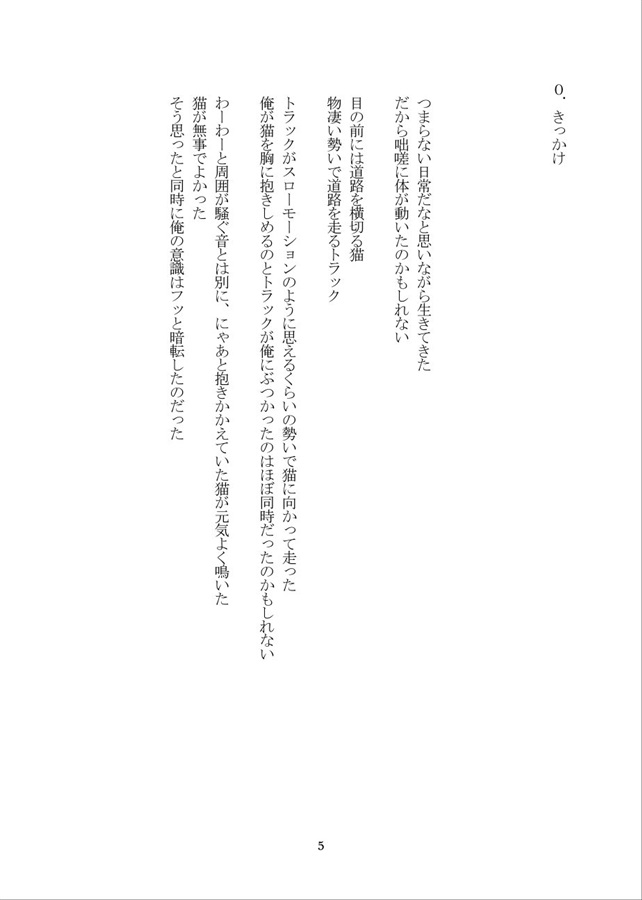 ０．きっかけ
つまらない日常だなと思いながら生きてきた
だから咄嗟に体が動いたのかもしれない
目の前には道路を横切る猫
物凄い勢いで道路を走るトラック
トラックがスローモーションのように思えるくらいの勢いで猫に向かって走った
俺が猫を胸に抱きしめるのとトラックが俺にぶつかったのはほぼ同時だったのかもしれない
わーわーと周囲が騒ぐ音とは別に、にゃあと抱きかかえていた猫が元気よく鳴いた
猫が無事でよかった
そう思ったと同時に俺の意識はフッと暗転したのだった
5